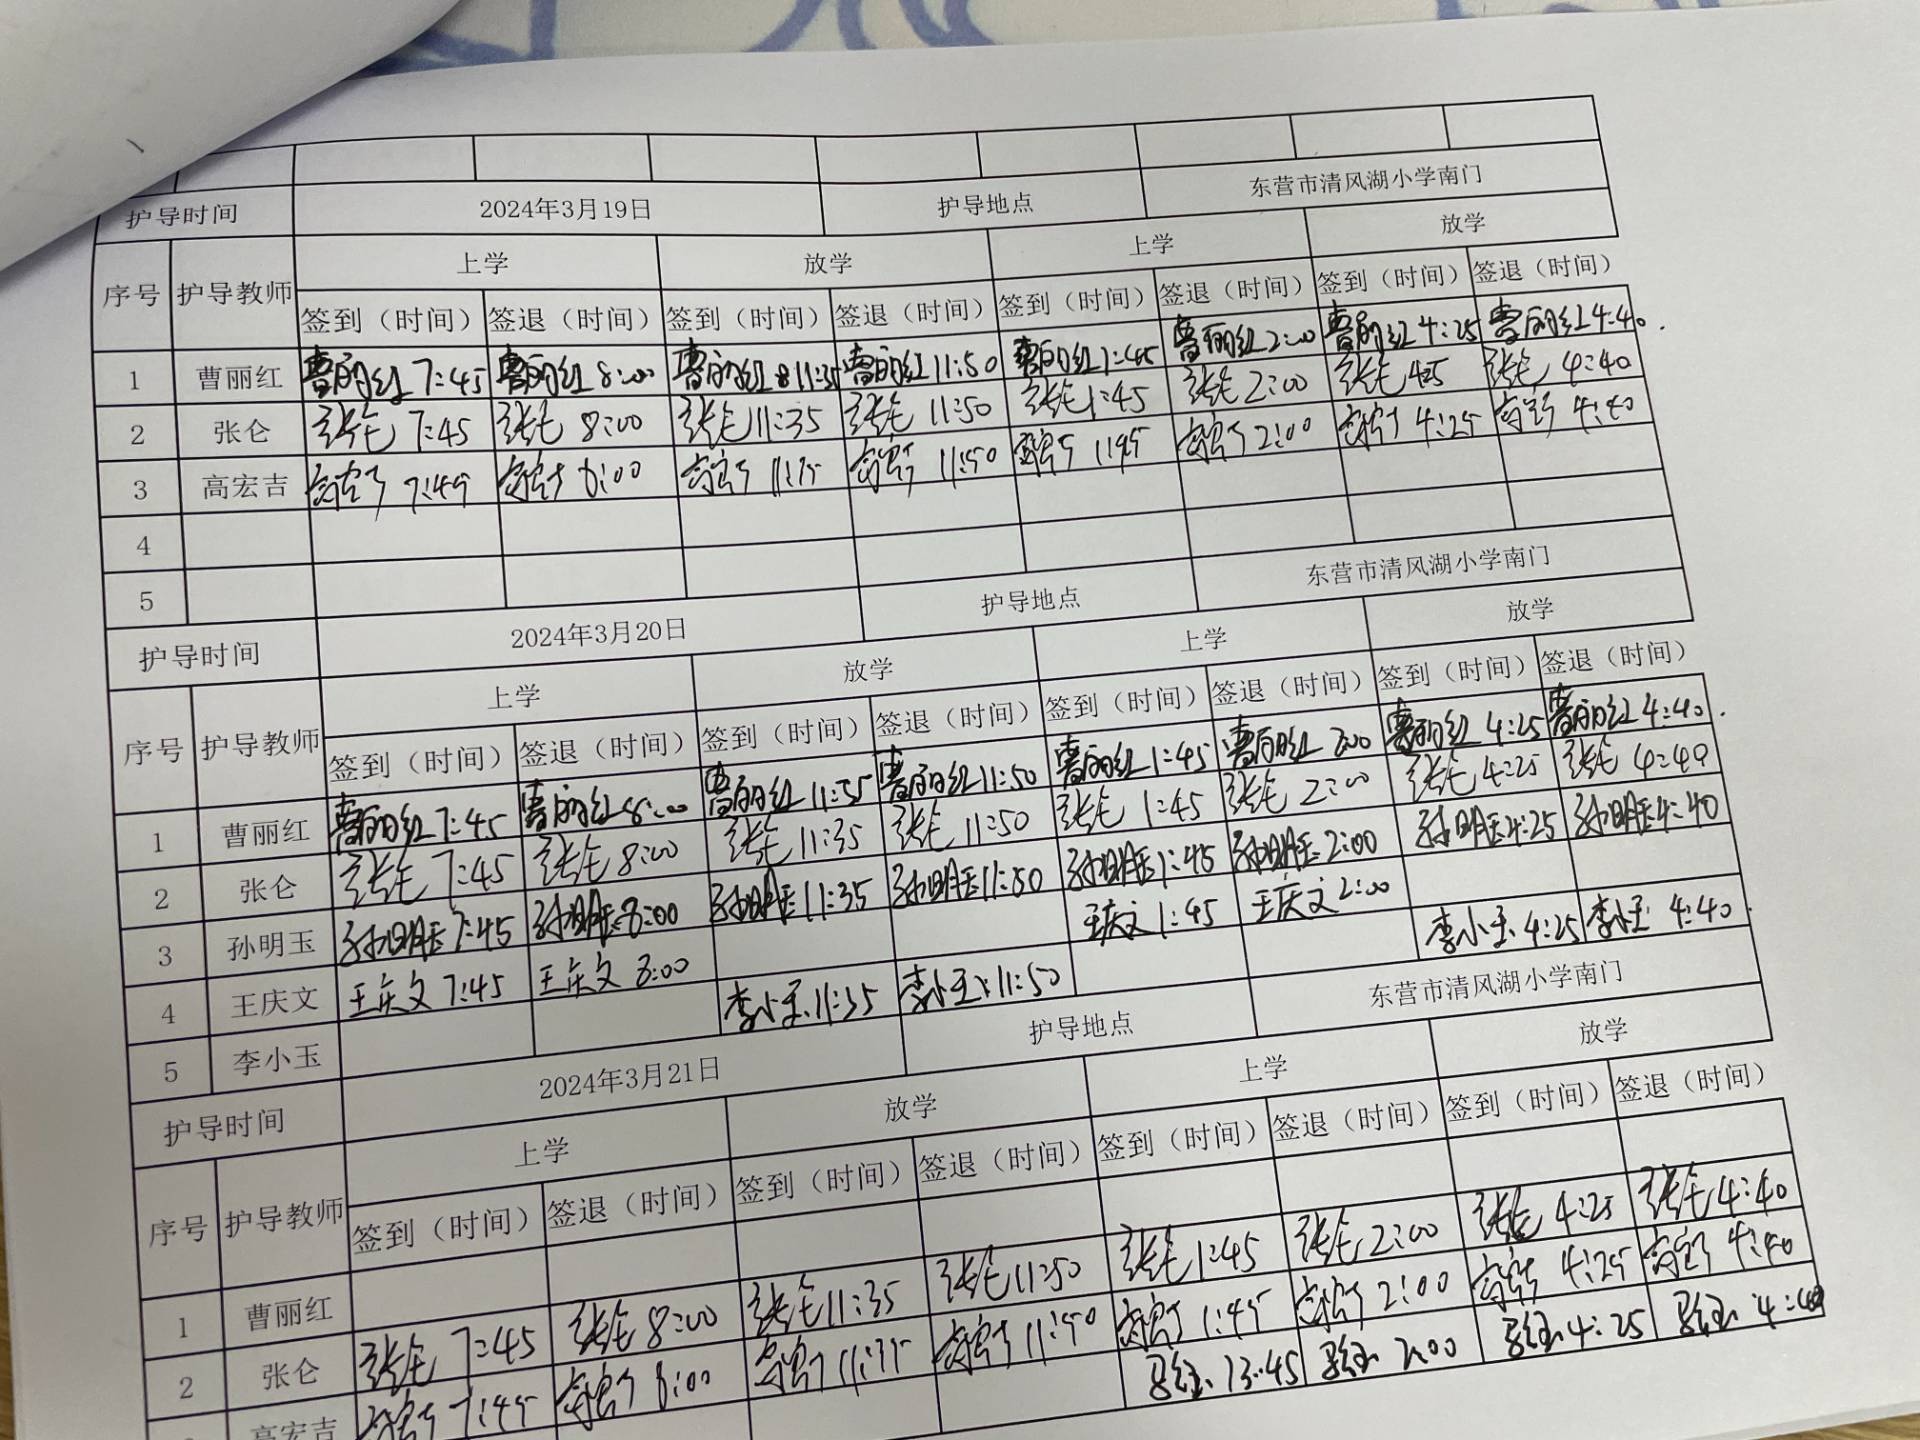 护导时间 2024年3月19日 护导地点 东营市清风湖小学南门
序号 护导教师 上学 放学 上学 放学
签到（时间） 签退（时间） 签到（时间） 签退（时间） 签到（时间） 签退（时间） 签到（时间） 签退（时间）
1 曹丽红 曹丽红 7:45 曹丽红 8:00 曹丽红 11:35 曹丽红 11:50 曹丽红 1:45 曹丽红 2:00 曹丽红 4:25 曹丽红 4:40
2 张仑 张仑 7:45 张仑 8:00 张仑 11:35 张仑 11:50 张仑 1:45 张仑 2:00 张仑 4:25 张仑 4:40
3 高宏吉 高宏吉 7:45 高宏吉 8:00 高宏吉 11:35 高宏吉 11:50 高宏吉 1:45 高宏吉 2:00 高宏吉 4:25 高宏吉 4:40
4
5
护导时间 2024年3月20日 护导地点 东营市清风湖小学南门
序号 护导教师 上学 放学 上学 放学
签到（时间） 签退（时间） 签到（时间） 签退（时间） 签到（时间） 签退（时间） 签到（时间） 签退（时间）
1 曹丽红 曹丽红 7:45 曹丽红 8:00 曹丽红 11:35 曹丽红 11:50 曹丽红 1:45 曹丽红 2:00 曹丽红 4:25 曹丽红 4:40
2 张仑 张仑 7:45 张仑 8:00 张仑 11:35 张仑 11:50 张仑 1:45 张仑 2:00 张仑 4:25 张仑 4:40
3 孙明玉 孙明玉 7:45 孙明玉 8:00 孙明玉 11:35 孙明玉 11:50 孙明玉 1:45 孙明玉 2:00 孙明玉 4:25 孙明玉 4:40
4 王庆文 王庆文 7:45 王庆文 8:00 王庆文 1:45 王庆文 2:00
5 李小玉 李小玉 11:35 李小玉 11:50 李小玉 4:25 李小玉 4:40
护导时间 2024年3月21日 护导地点 东营市清风湖小学南门
序号 护导教师 上学 放学 上学 放学
签到（时间） 签退（时间） 签到（时间） 签退（时间） 签到（时间） 签退（时间） 签到（时间） 签退（时间）
1 曹丽红
2 张仑 张仑 7:45 张仑 8:00 张仑 11:35 张仑 11:50 张仑 1:45 张仑 2:00 张仑 4:25 张仑 4:40
高宏吉 高宏吉 7:45 高宏吉 8:00 高宏吉 11:35 高宏吉 11:50 高宏吉 1:45 高宏吉 2:00 高宏吉 4:25 高宏吉 4:40
13:45 2:00 4:25 4:40